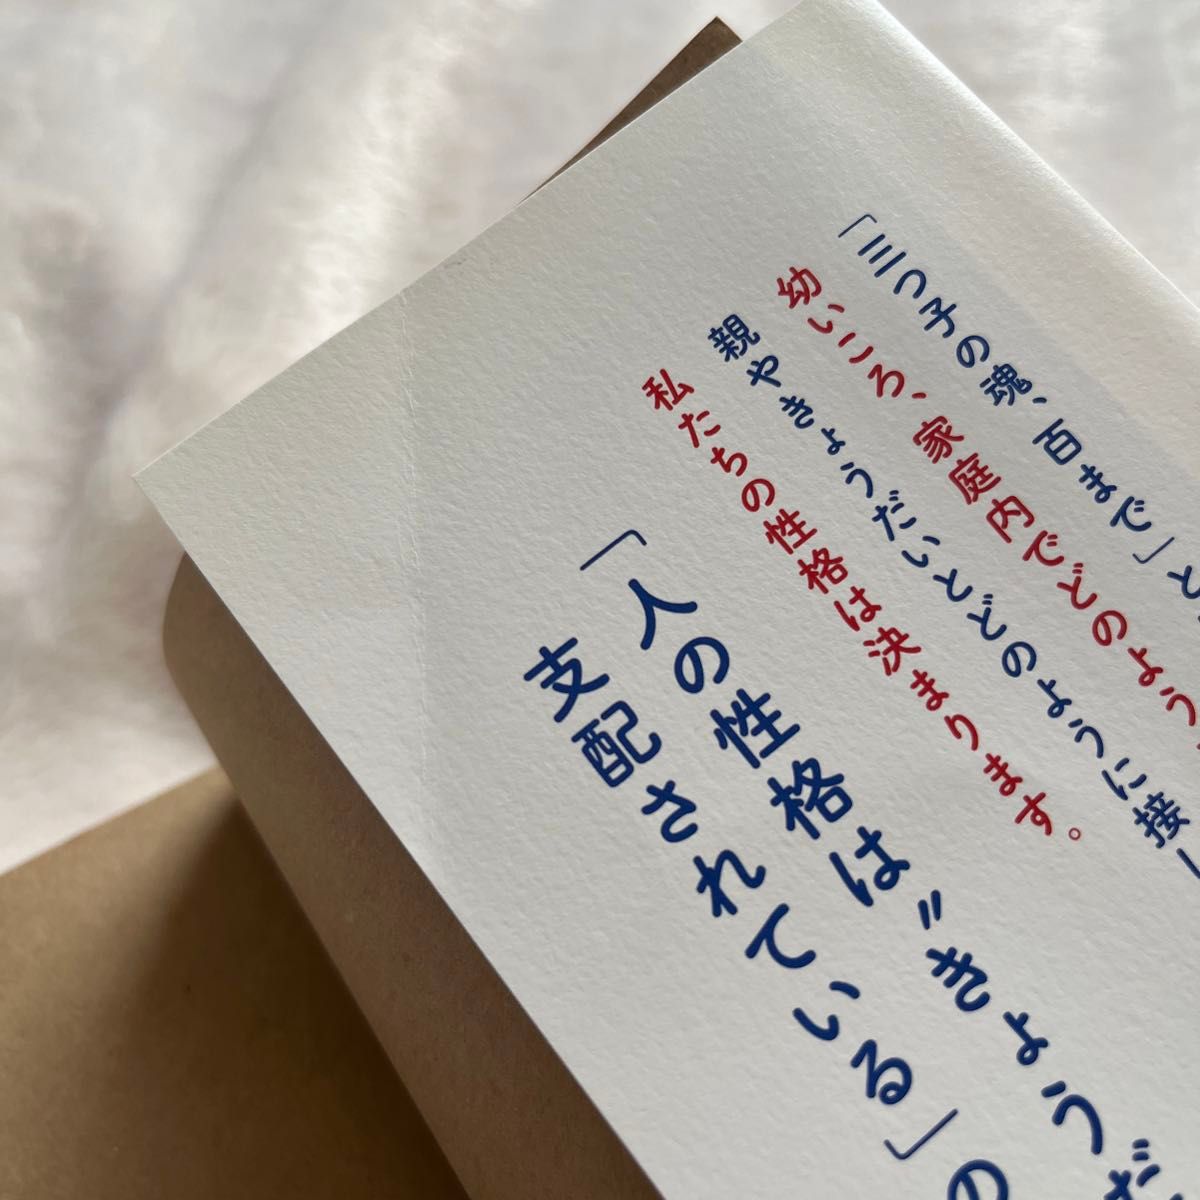 「三つ子の魂、百まで」と
幼いころ、家庭内でどのよう
親やきょうだいとどのように接し
私たちの性格は決まります。
「人の性格は〝きょうだ
支配されている」の